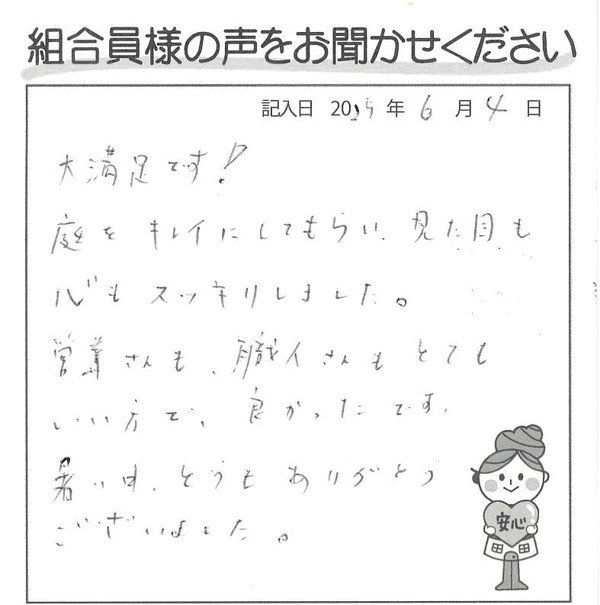 組合員様の声をお聞かせください
記入日 2025年 6月 4日
大満足です!
庭を キレイにしてもらい、見た目も
心も スッキリしました。
営業さんも、職人さんもとても
いい方で、良かったです。
暑い中、どうもありがとう
ございました。
安心